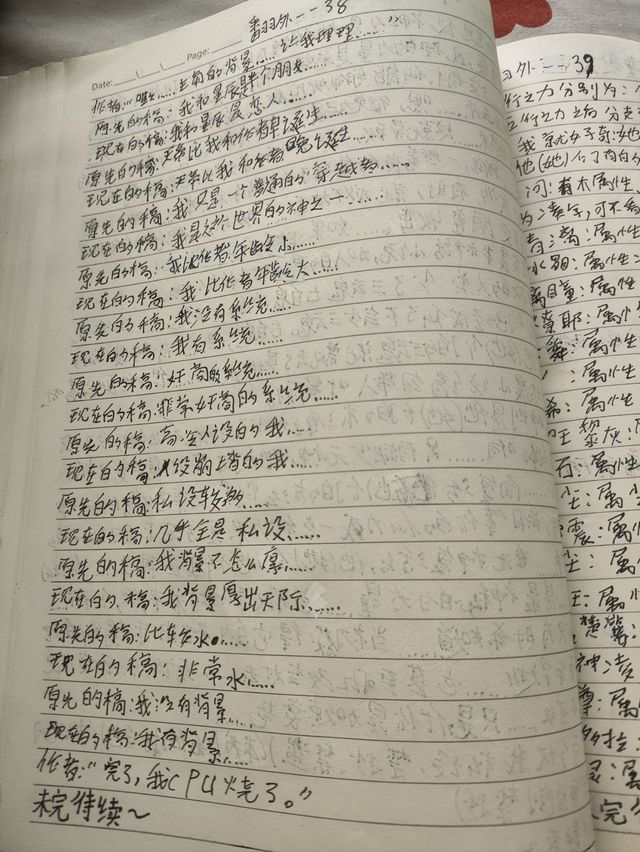 番外--38
Date:
Page:
作者："嗯……主角的背景……让我理理……"
原先的稿：我和星辰是个朋友……
现在的稿：我和星辰是恋人……
原先的稿：天帝比我和作者早诞生
现在的稿：天帝比我和作者晚诞生
原先的稿：我只是一个普通的穿越者……
现在的稿：我是这个世界的神之一……
原先的稿：我比作者年龄小……
现在的稿：我比作者年龄大……
原先的稿：我没有系统……
现在的稿：我有系统……
原先的稿：奸商的系统……
现在的稿：非常奸商的系统……
原先的稿：高冷人设的我……
现在的稿：人设崩塌的我……
原先的稿：私设较为……
现在的稿：几乎全是私设……
原先的稿：我背景不怎么厚……
现在的稿：我背景厚出天际……
原先的稿：比较水……
现在的稿：非常水……
原先的稿：我没有背景……
现在的稿：我有背景……
作者："完了，我CPU烧了。"
未完待续~
番外--39
行之力分别为：
五行之力之后分支
我就好奇
他(她)们
河：有木属性
为凑字，可不
青漓：属性
水
属性：
耶：属性
舞：属性
：属性
希：属性
黎灰：
石：属性
尘：属
震：属
尘：属
王：属
楚
神凌
尊：属
灵：属
完